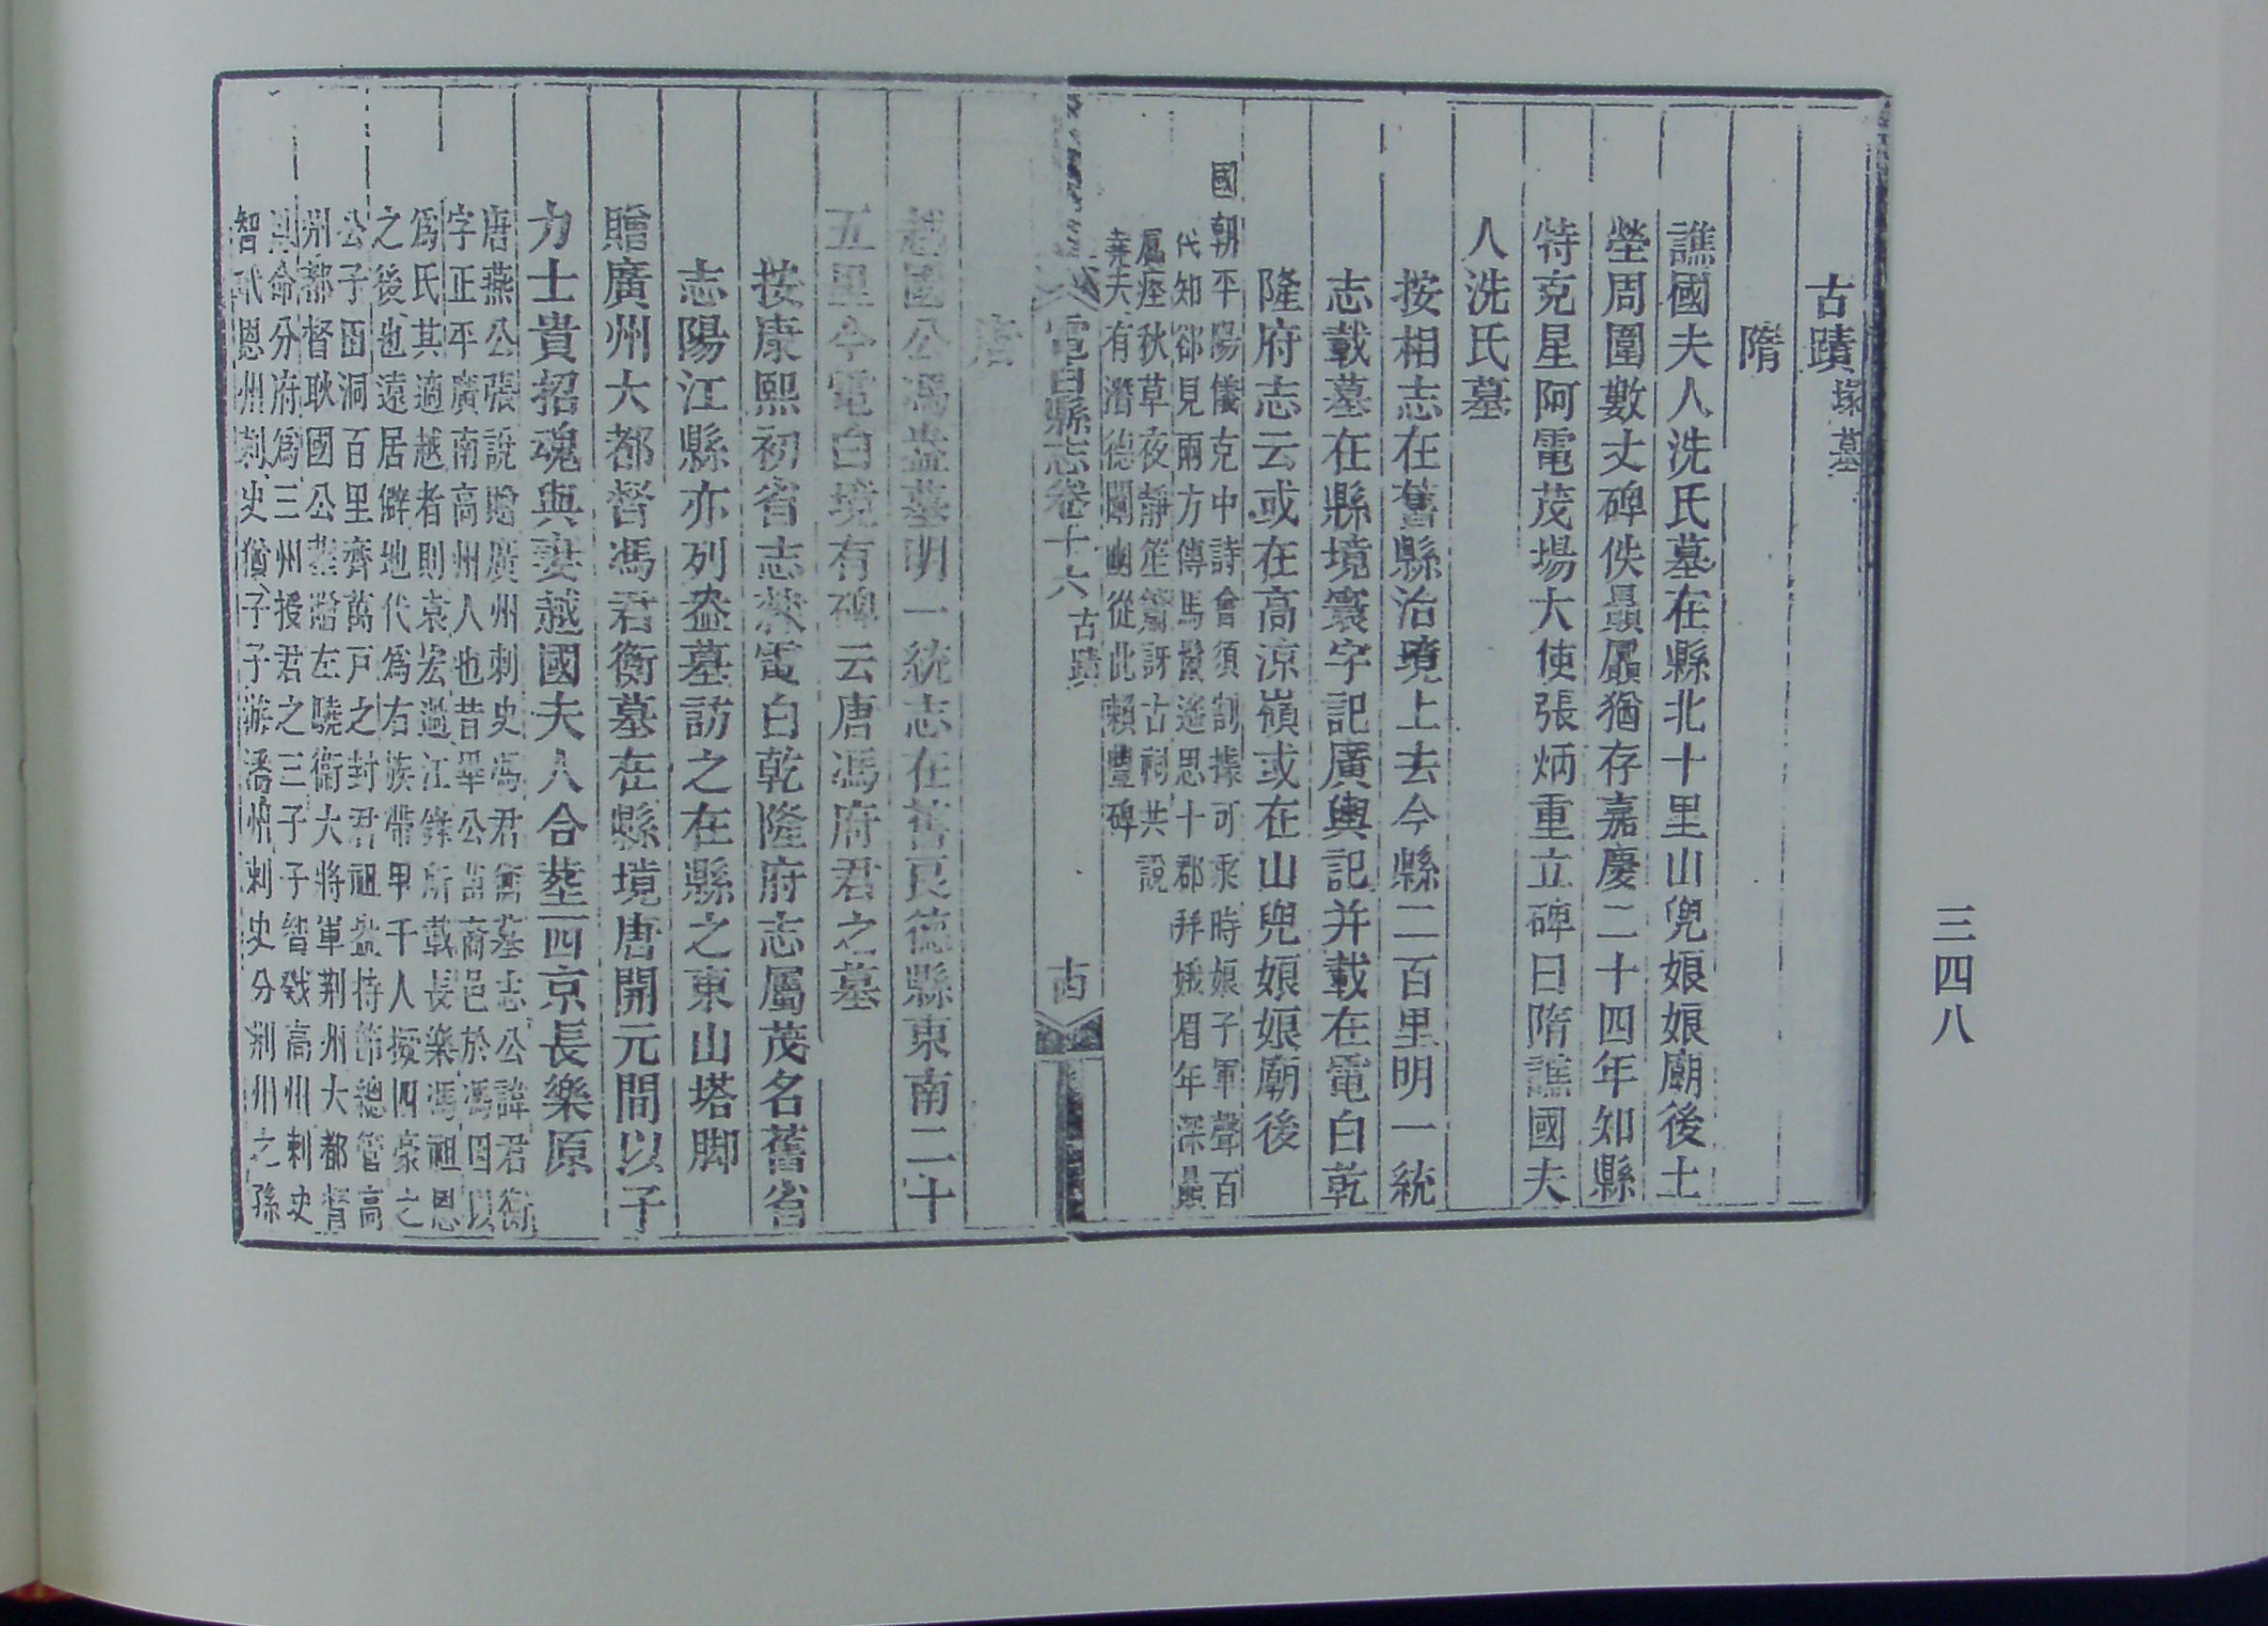 古蹟塚墓
隋
譙國夫人洗氏墓在縣北十里山兜娘娘廟後土
塋周圍數丈碑佚贔屭猶存嘉慶二十四年知縣
特克星阿電茂場大使張炳重立碑曰隋譙國夫
人洗氏墓
按相志在舊縣治境上去今縣二百里明一統
志載墓在縣境寰宇記廣輿記并載在電白乾
隆府志云或在高涼嶺或在山兜娘娘廟後
國朝平陽儀克中詩會須割據可乘時娘子軍聲百
代知郤見兩方傳馬鬣遙思十郡拜娥眉年深贔
屭瘞秋草夜靜笙簫訝古祠共說
堯夫有潛德闡幽從此賴豐碑
電白縣志卷十六 古蹟
唐
越國公馮盎墓明一統志在舊良德縣東南二十
五里今電白境有碑云唐馮府君之墓
按康熙初省志載電白乾隆府志屬茂名舊省
志陽江縣亦列盎墓訪之在縣之東山塔脚
贈廣州大都督馮君衡墓在縣境唐開元間以子
力士貴招魂與妻越國夫人合塟西京長樂原
唐燕公張說贈廣州刺史馮君衡墓志公諱君衡
字正平廣南高州人也昔畢公萬裔邑於馮因以
爲氏其適越者則袁宏過江錄所載長樂馮祖恩
之後也遠居僻地代爲右族帶甲千人擬四豪之
公子田洞百里齊萬戸之封君祖盎持節總管高
州都督耿國公薨贈左驍衛大將軍荆州大都督
恩命分府爲三州授君之三子子智戣高州刺史
智玳恩州刺史猶子子游潘州刺史分荆州之孫
三四八